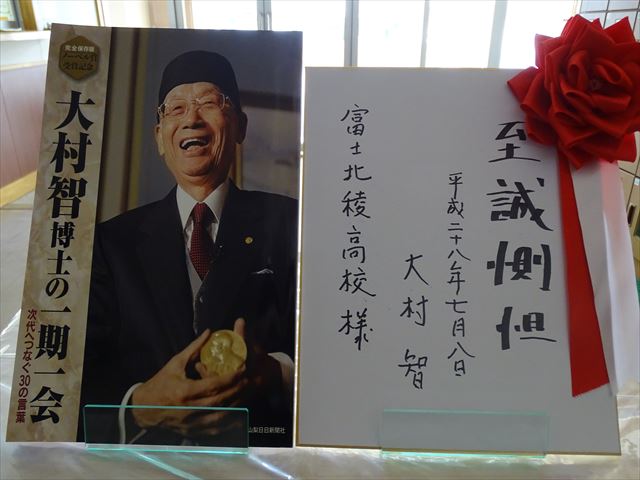 完全保存版
ノーベル賞
受賞記念
大村智博士の一期一会
次代へつなぐ30の言葉
山梨日日新聞社
至誠惻怛
平成二十八年七月八日
大村智
富士北稜高校様